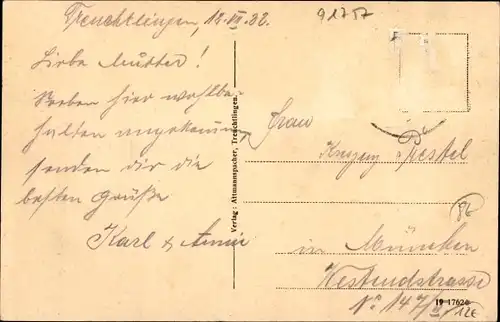 Treuchtlingen, 12.VII.32.
Liebe Mutter!
Soeben hier wohlbe-
halten angekommen
senden dir die
besten Grüße
Karl & Anni
Verlag: Attmannspacher, Treuchtlingen.
91757
Frau
Nestel
in München
Westendstrasse
No. 147/II
19 17620
8€
12€